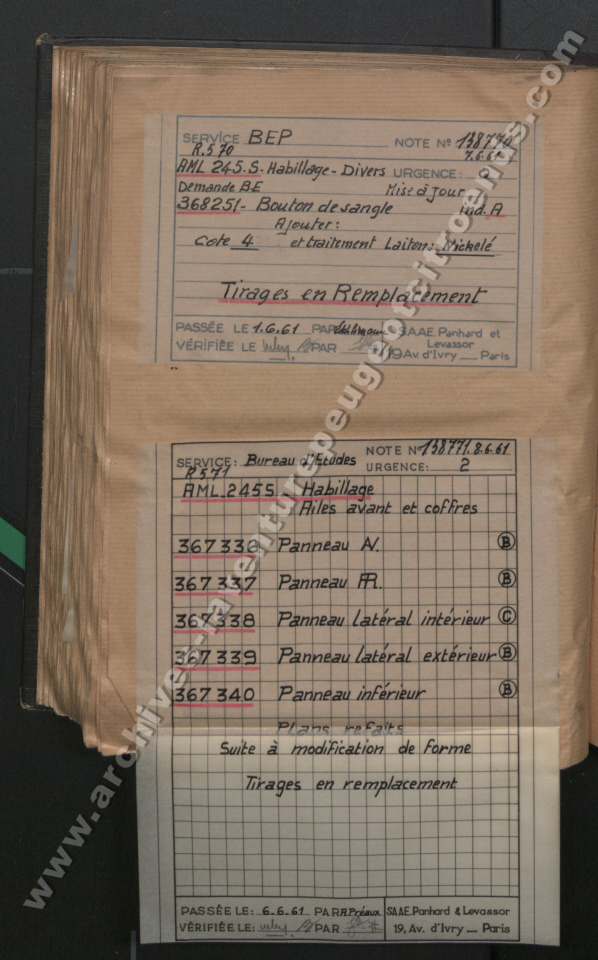 SERVICE BEP NOTE Nº 138770
R.570 7.6.61
AML 245.S - Habillage - Divers URGENCE: 2
Demande B.E Mise à jour
368251 - Bouton de sangle ind. A
Ajouter:
Cote 4 et traitement Laiton: Nickelé
Tirages en Remplacement
PASSÉE LE 1.6.61 PAR SAAE. Panhard et
Levassor
VÉRIFIÉE LE PAR 19 Av. d'Ivry — Paris
SERVICE: Bureau d'Etudes NOTE Nº 138771. 8.6.61
URGENCE: 2
R571
AML.245S Habillage
Ailes avant et coffres
367336 Panneau AV. B
367337 Panneau AR. B
367338 Panneau latéral intérieur C
367339 Panneau latéral extérieur B
367340 Panneau inférieur B
Plans refaits
Suite à modification de forme
Tirages en remplacement
PASSÉE LE: 6.6.61 PAR R.Préaux SAAE. Panhard & Levassor
VÉRIFIÉE LE: PAR 19, Av. d'Ivry — Paris
www.archives-laventurepeugeotcitroends.com